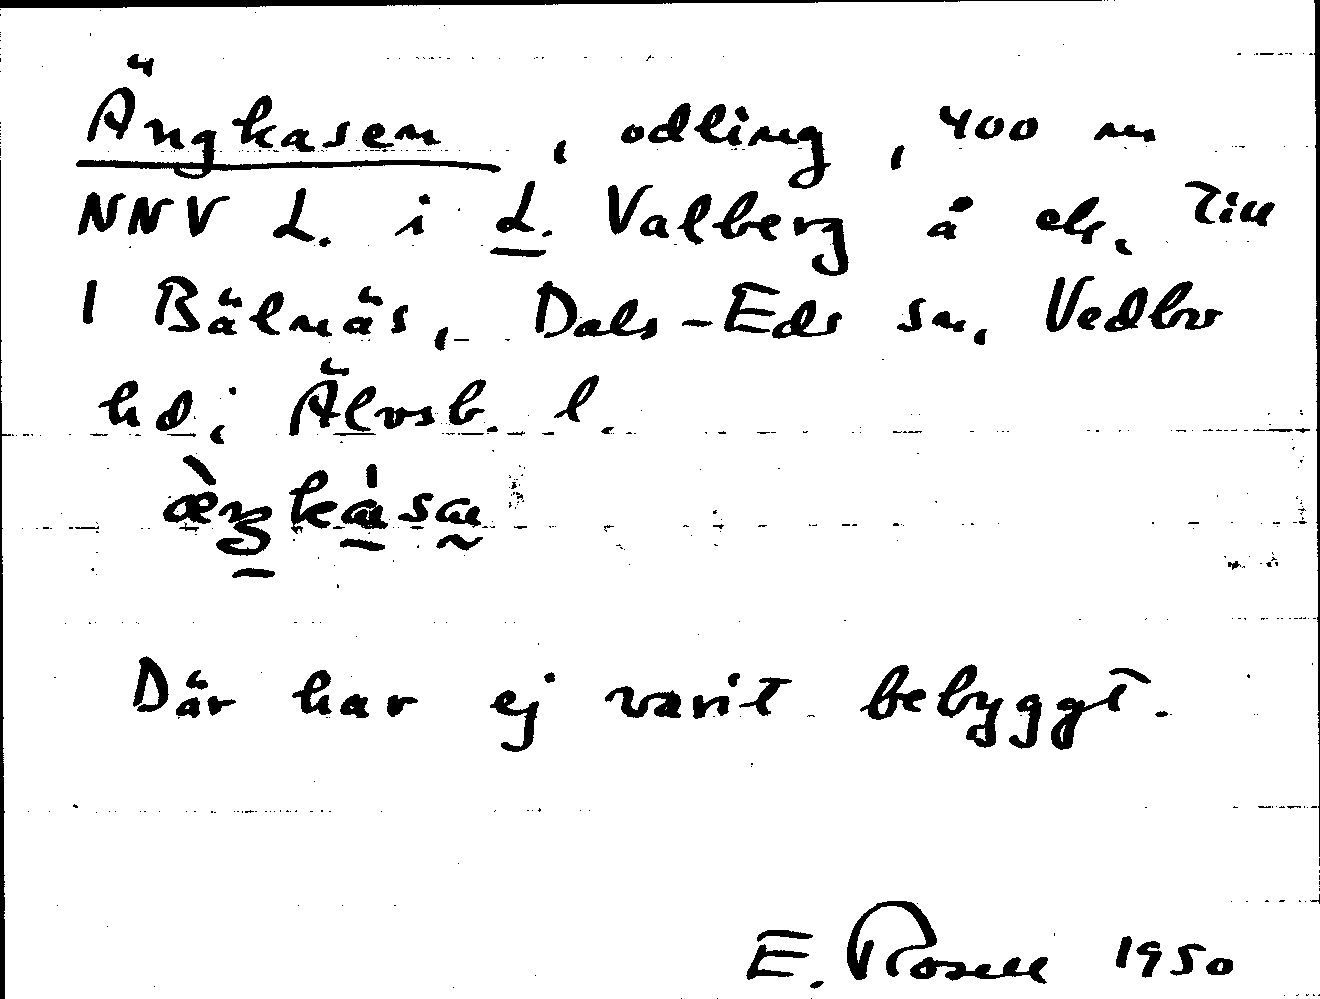 Ängkasen, odling, 400 m
NNV L. i L. Valberg å ek. till
1 Bälnäs, Dals-Eds sn, Vedbo
hd, Älvsb. l.
Där har ej varit bebyggt.
E. Rosell 1950